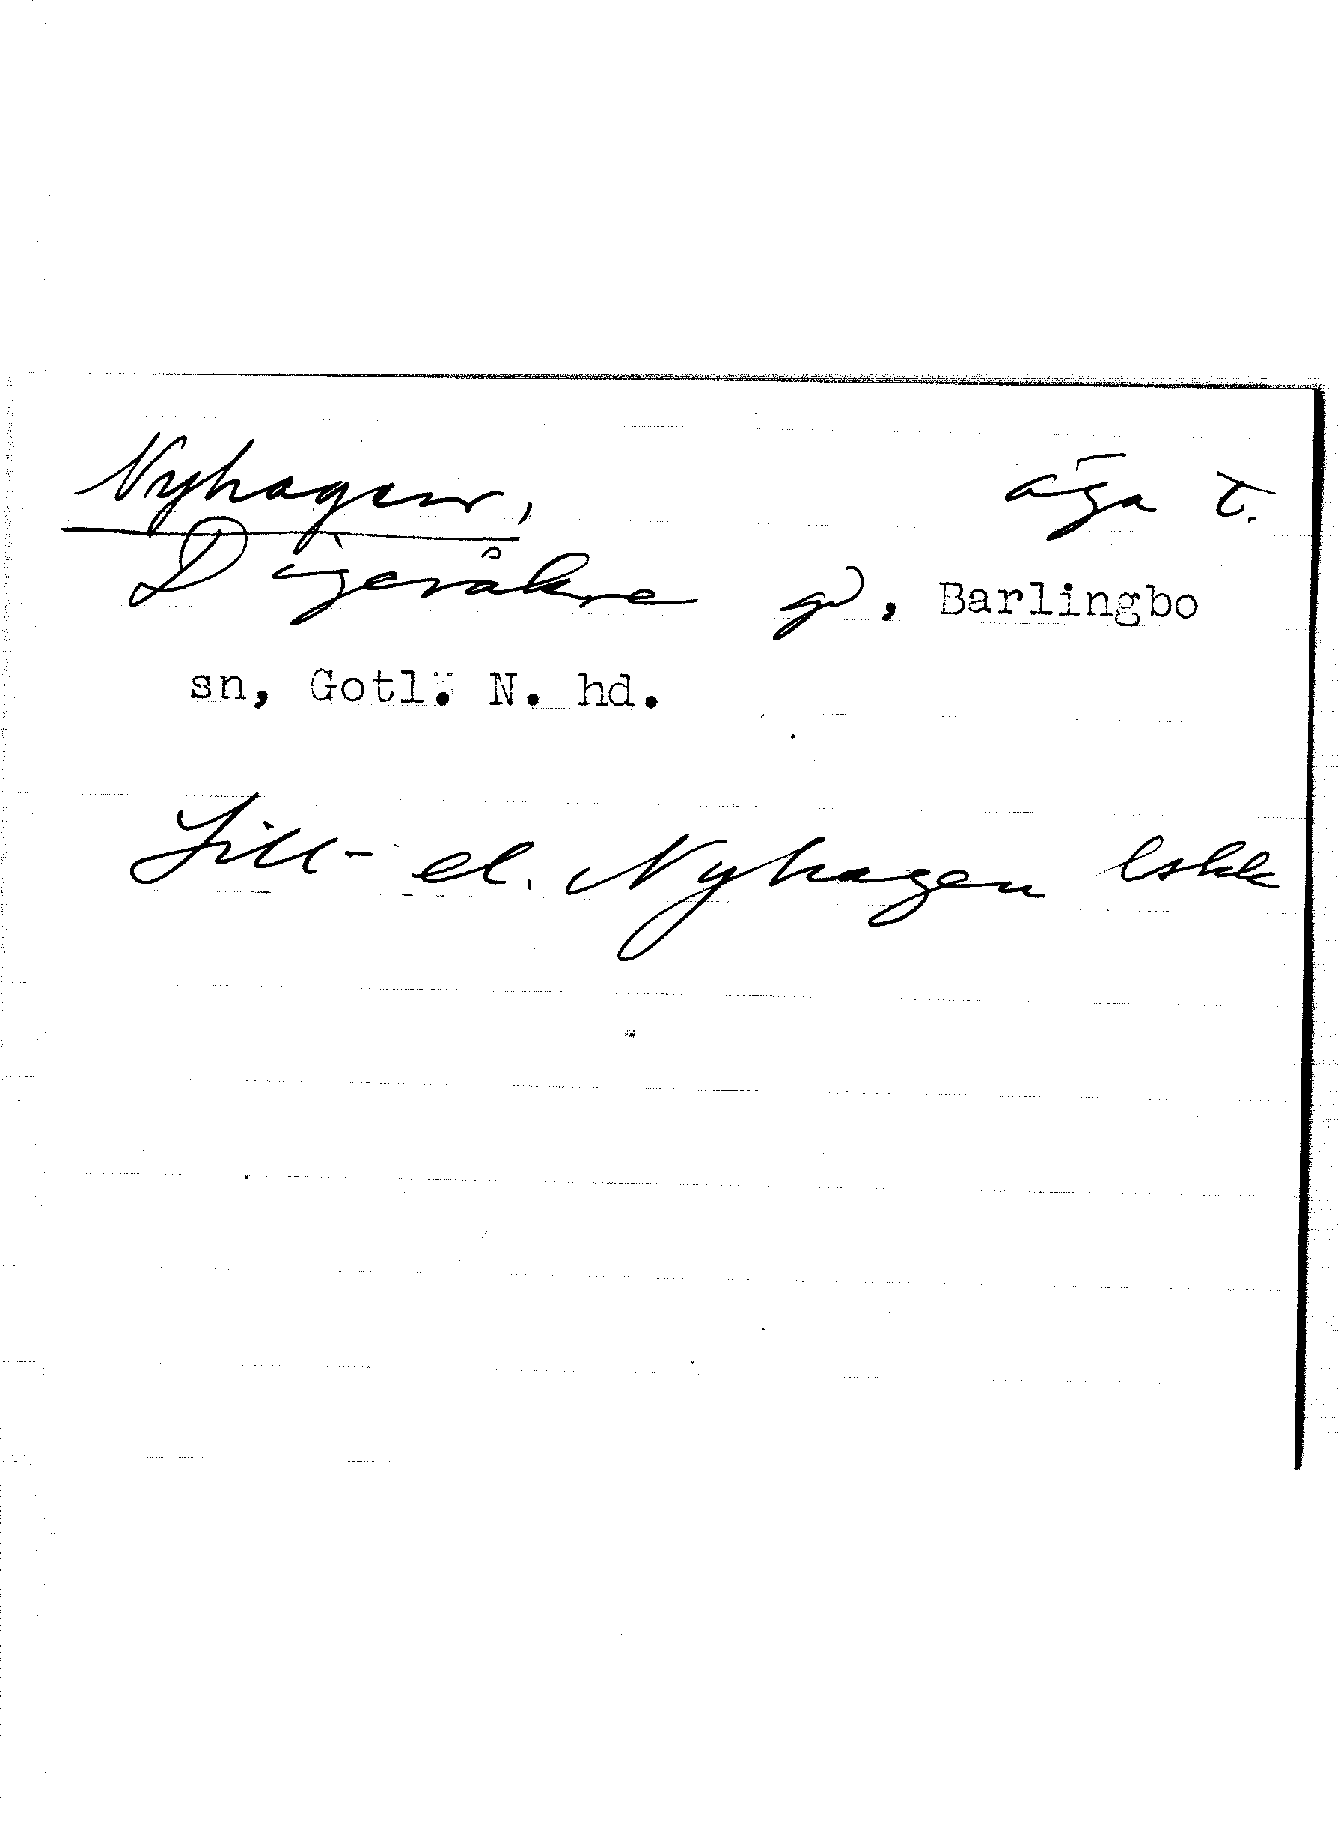 Nyhagen, äga t.
Digeråkra gd, Barlingbo
sn, Gotl. N. hd.
Lill- el. Nyhagen Lskk